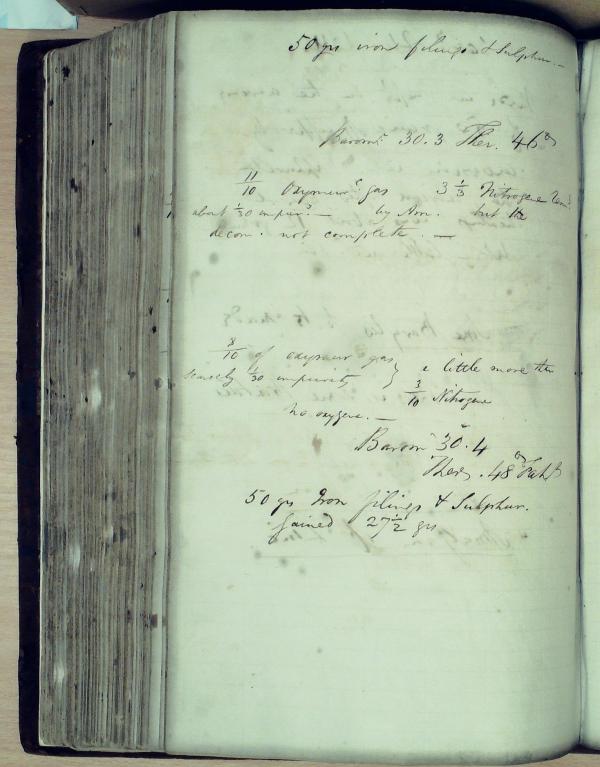 50 grs iron filings & Sulphur. —
Barom.r 30.3 Ther. 46°
11/10 Oxymur.c gas 3 1/3 Nitrogene
about 1/30 impur.y — by Am. but the
decom. not complete. —
8/10 of oxymur gas } a little more than
scarcely 1/30 impurity 3/10 Nitrogene
no oxygene. —
Barom 30.4
Ther. 48° Faht
50 grs Iron filings & Sulphur.
gained 27 1/2 grs